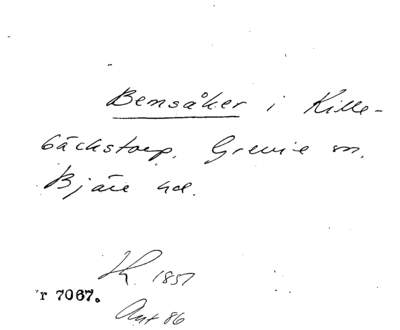 Bensåker i Kille-
bäckstorp. Grevie sn.
Bjäre hd.
1851
r 7067.
86